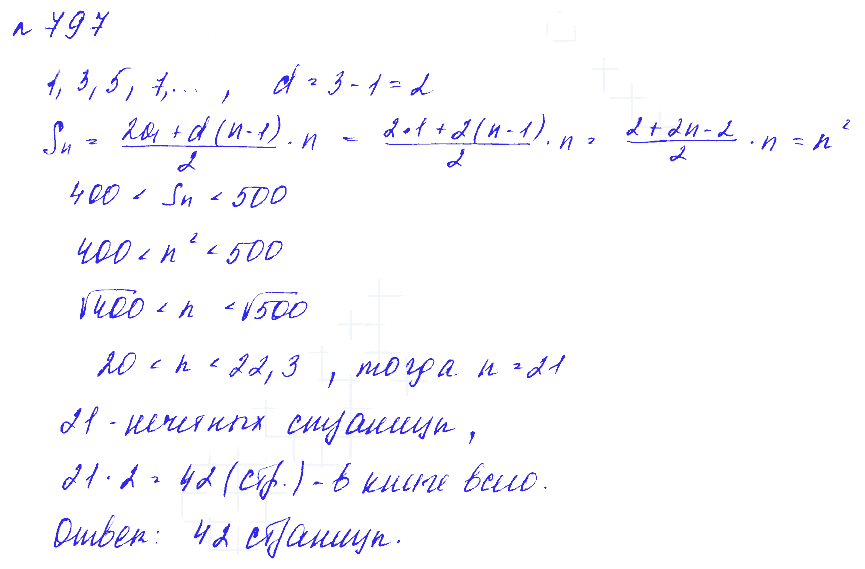 № 797
1, 3, 5, 7,... , d = 3 - 1 = 2
Sₙ = (2a₁ + d(n-1))/2 · n = (2·1 + 2(n-1))/2 · n = (2 + 2n - 2)/2 · n = n²
400 < Sₙ < 500
400 < n² < 500
√400 < n < √500
20 < n < 22,3 , тогда n = 21
21 - нечетных страницы,
21 · 2 = 42 (стр.) - в книге всего.
Ответ: 42 страницы.